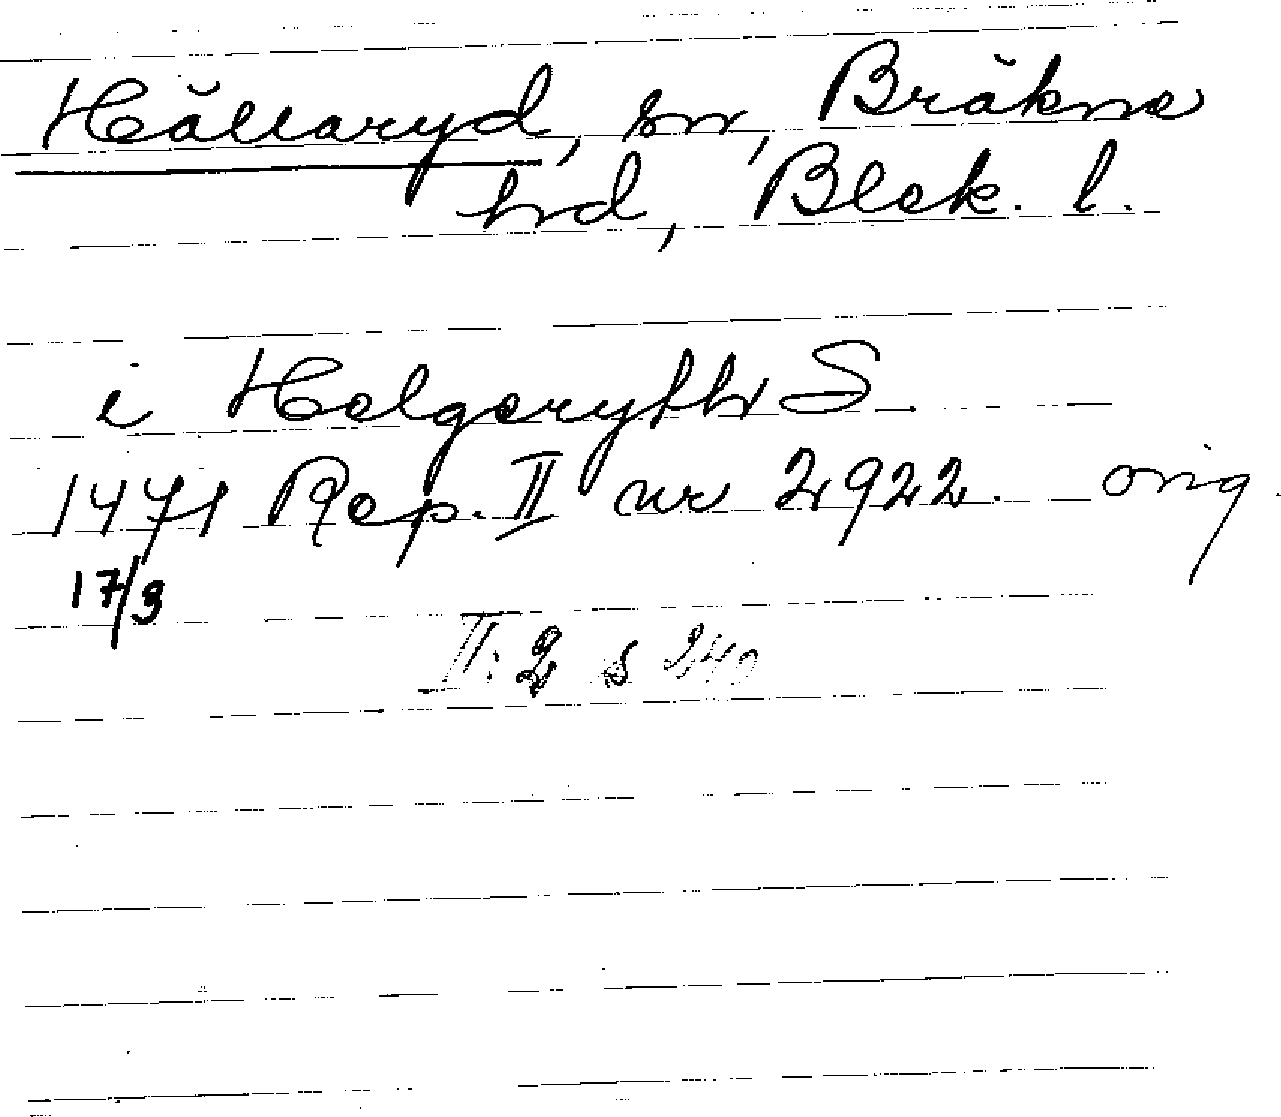 Hällaryd, sn, Bräkne
hd, Blek. l.
i Helgerythr S.
1471 Rep. II nr 2922. orig.
17/3
II: 2 s 240